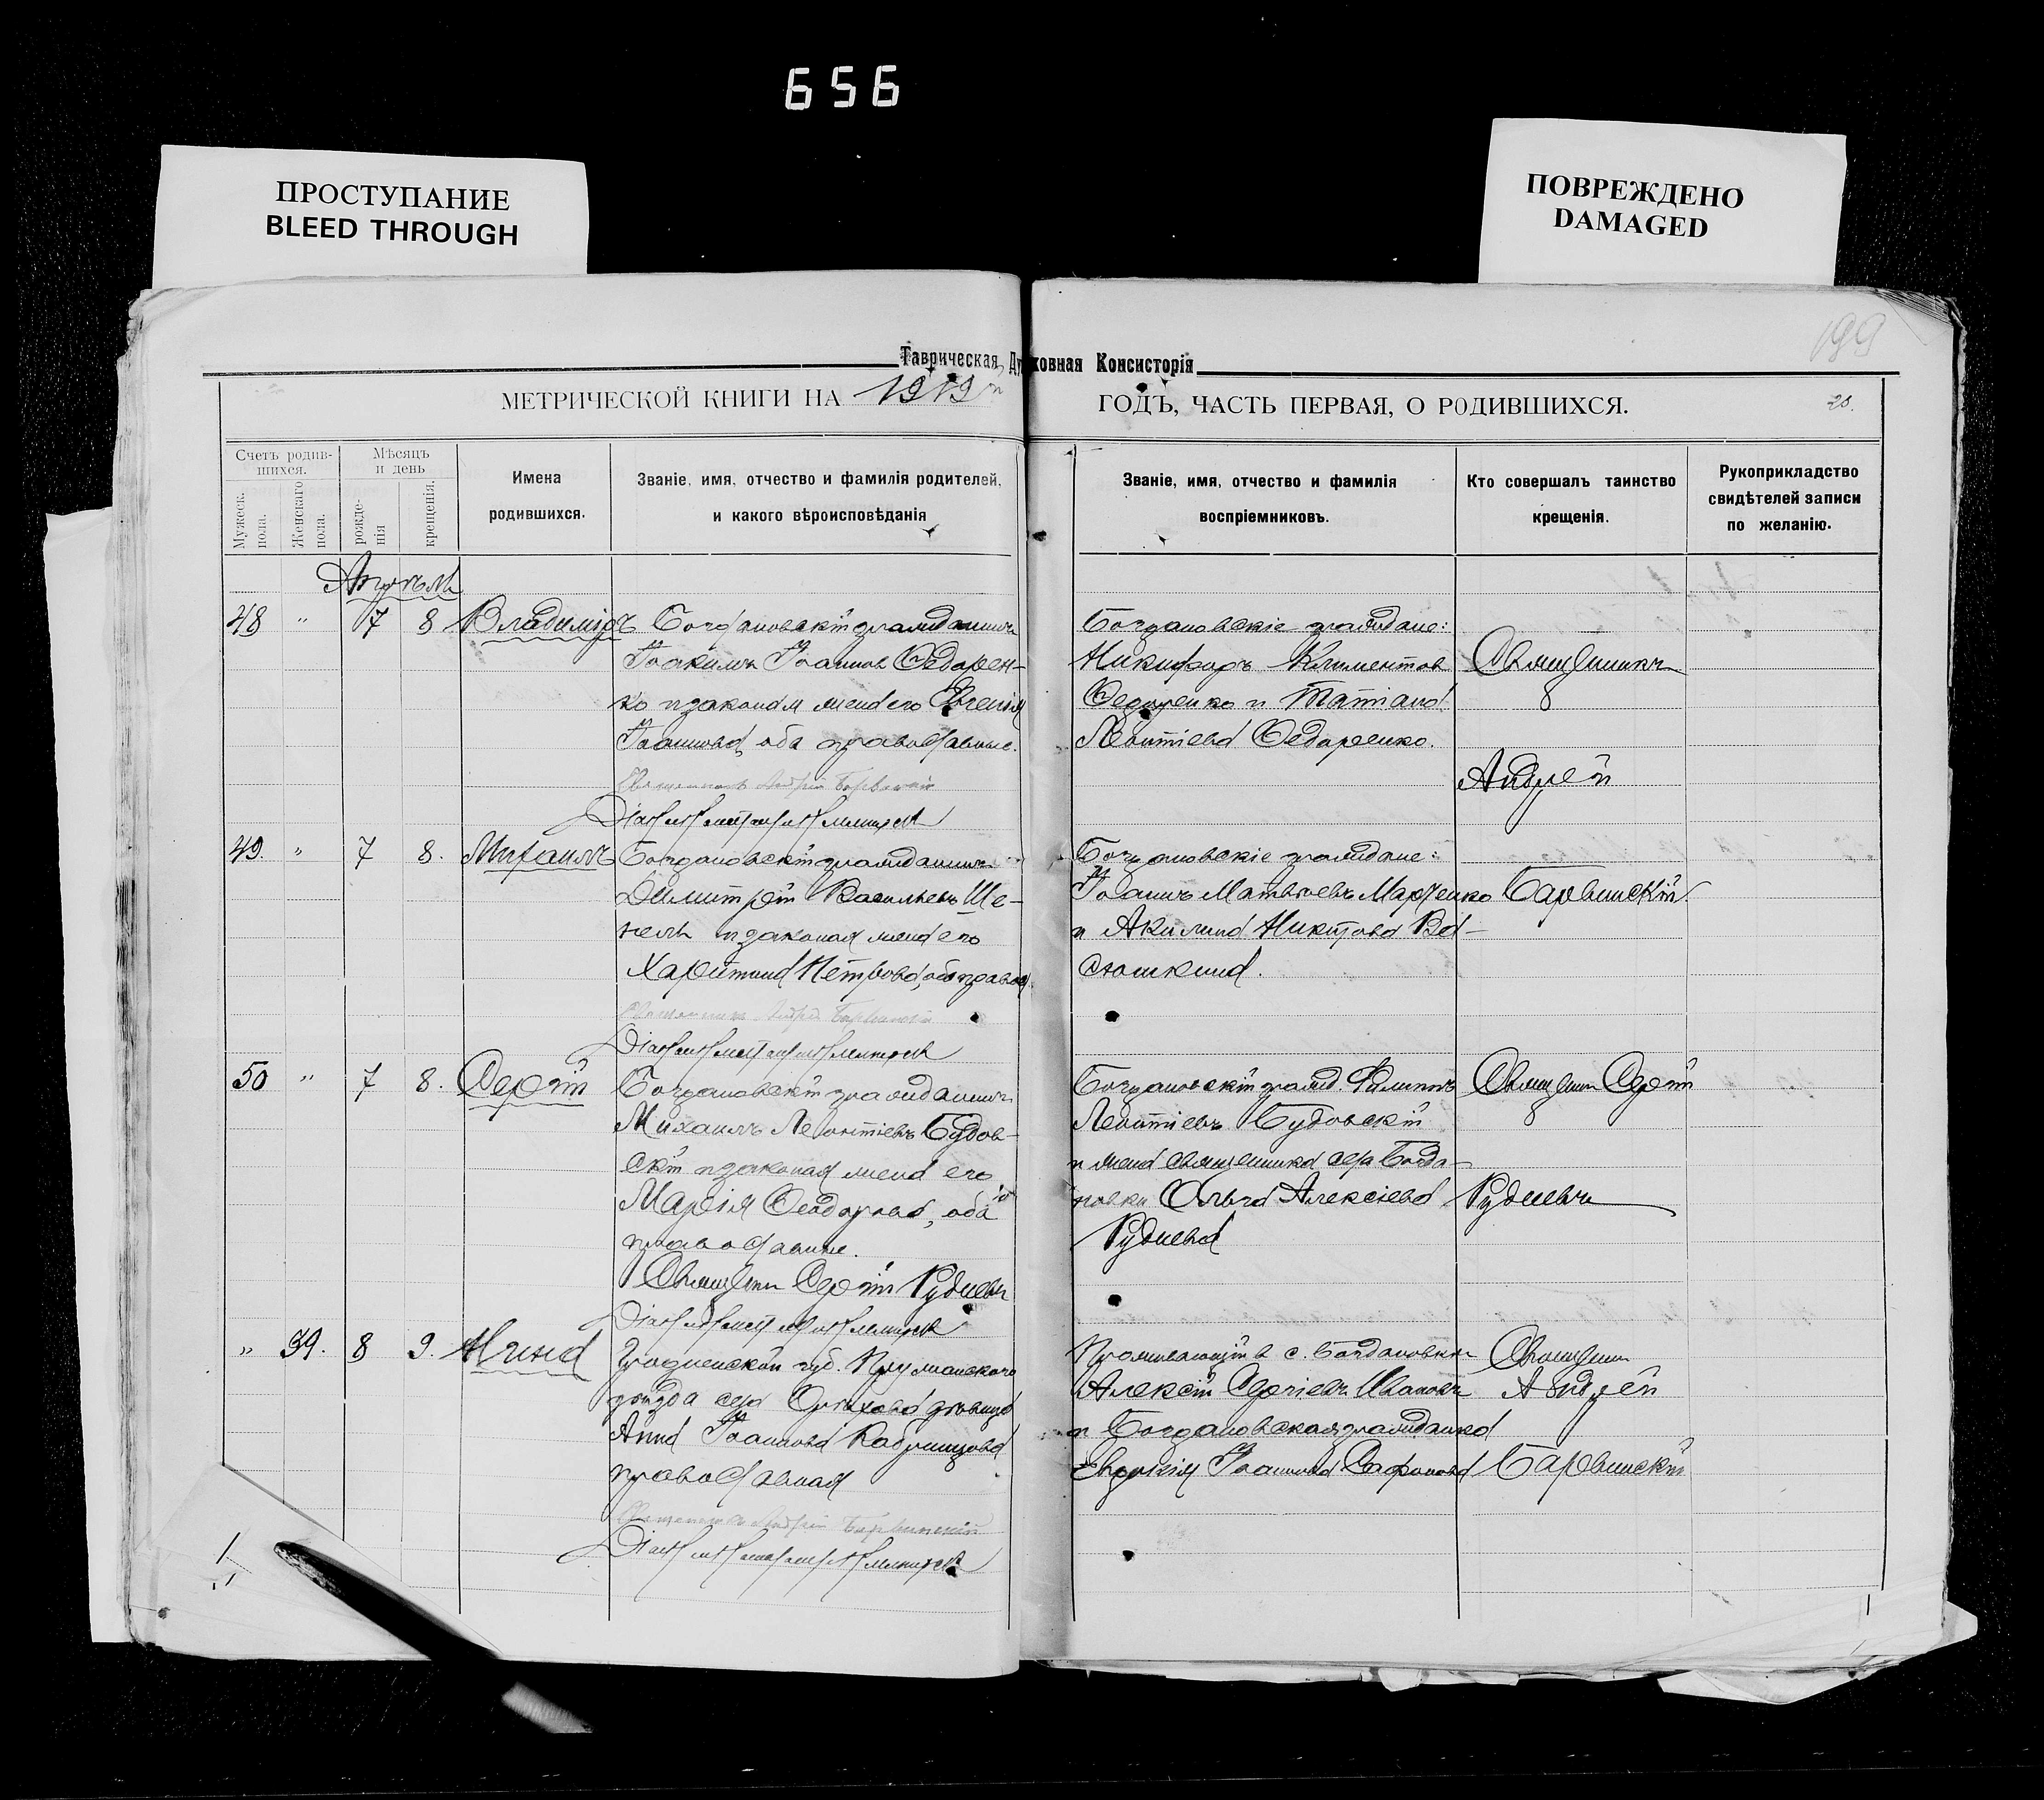 656
ПРОСТУПАНИЕ
BLEED THROUGH
ПОВРЕЖДЕНО
DAMAGED
199
Таврическая Духовная Консисторія
МЕТРИЧЕСКОЙ КНИГИ НА 1919 й ГОДЪ, ЧАСТЬ ПЕРВАЯ, О РОДИВШИХСЯ.
20.
Счетъ родив-
шихся.
Мужеск. пола.
Женскаго пола.
Мѣсяцъ
и день
рожде-
нія
крещенія.
Имена
родившихся.
Званіе, имя, отчество и фамилія родителей,
и какого вѣроисповѣданія
Званіе, имя, отчество и фамилія
воспріемниковъ.
Кто совершалъ таинство
крещенія.
Рукоприкладство
свидѣтелей записи
по желанію.
Апрѣль
48 " 7 8 Владиміръ
Богдановскій гражданинъ
Іоакимъ Іоаннов Федорен-
ко и законая жена его Евгенія
Іоаннова, оба православные.
Священникъ Андрей Барвинскій
Богдановскіе граждане:
Никифоръ Климентов
Федоренко и Татіана
Леонтіева Федоренко.
Священникъ
Андрей
49. " 7 8. Михаилъ
Богдановскій гражданинъ
Димитрій Васильевъ Ще-
и законая жена его
Харитина Петрова, оба правосл.
Священникъ Андрей Барвинскій
Богдановскіе граждане:
Іоаннъ Матвѣевъ Марченко
и Акилина Никитова Ва-
сюткина.
Барвинскій.
50 " 7 8. Сергій
Богдановскій гражданинъ
Михаилъ Леонтіевъ Будов-
скій и законая жена его
Марія Феодорова, оба
православные.
Священн Сергій Рудневъ
Богдановскій гражд. Филиппъ
Леонтіевъ Будовскій
и жена священника села Богда-
новки Ольга Алексіева
Руднева
Священн Сергій
Рудневъ
" 39. 8 9. Нина
Гродненской губ. Пружанскаго
уѣзда села Орѣхова дѣвица
Анна Іоаннова
православная
Священникъ Андрей Барвинскій
Проживающій в с. Богдановки
Алексій Сергіевъ Ивановъ
и Богдановская гражданка
Евдокія Іоаннова
Священн
Андрей
Барвинскій